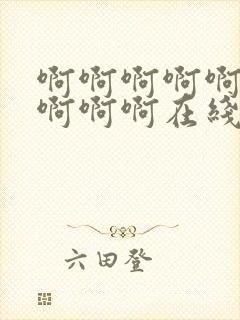 啊啊啊啊啊
啊啊啊啊在綫
六田登